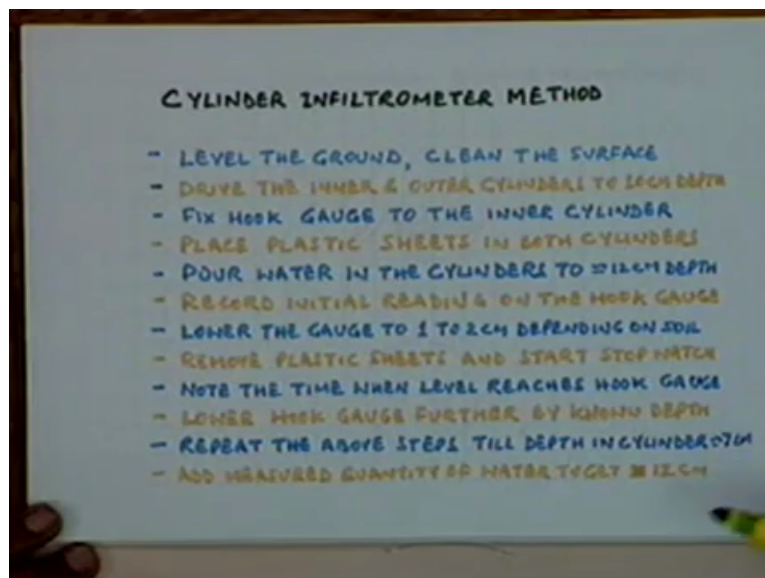 CYLINDER INFILTROMETER METHOD
- LEVEL THE GROUND, CLEAN THE SURFACE
- DRIVE THE INNER & OUTER CYLINDERS TO 10CM DEPTH
- FIX HOOK GAUGE TO THE INNER CYLINDER
- PLACE PLASTIC SHEETS IN BOTH CYLINDERS
- POUR WATER IN THE CYLINDERS TO ≈12CM DEPTH
- RECORD INITIAL READING ON THE HOOK GAUGE
- LOWER THE GAUGE TO 1 TO 2CM DEPENDING ON SOIL
- REMOVE PLASTIC SHEETS AND START STOP WATCH
- NOTE THE TIME WHEN LEVEL REACHES HOOK GAUGE
- LOWER HOOK GAUGE FURTHER BY KNOWN DEPTH
- REPEAT THE ABOVE STEPS TILL DEPTH IN CYLINDER ≈7CM
- ADD MEASURED QUANTITY OF WATER TO GET ≈ 12CM